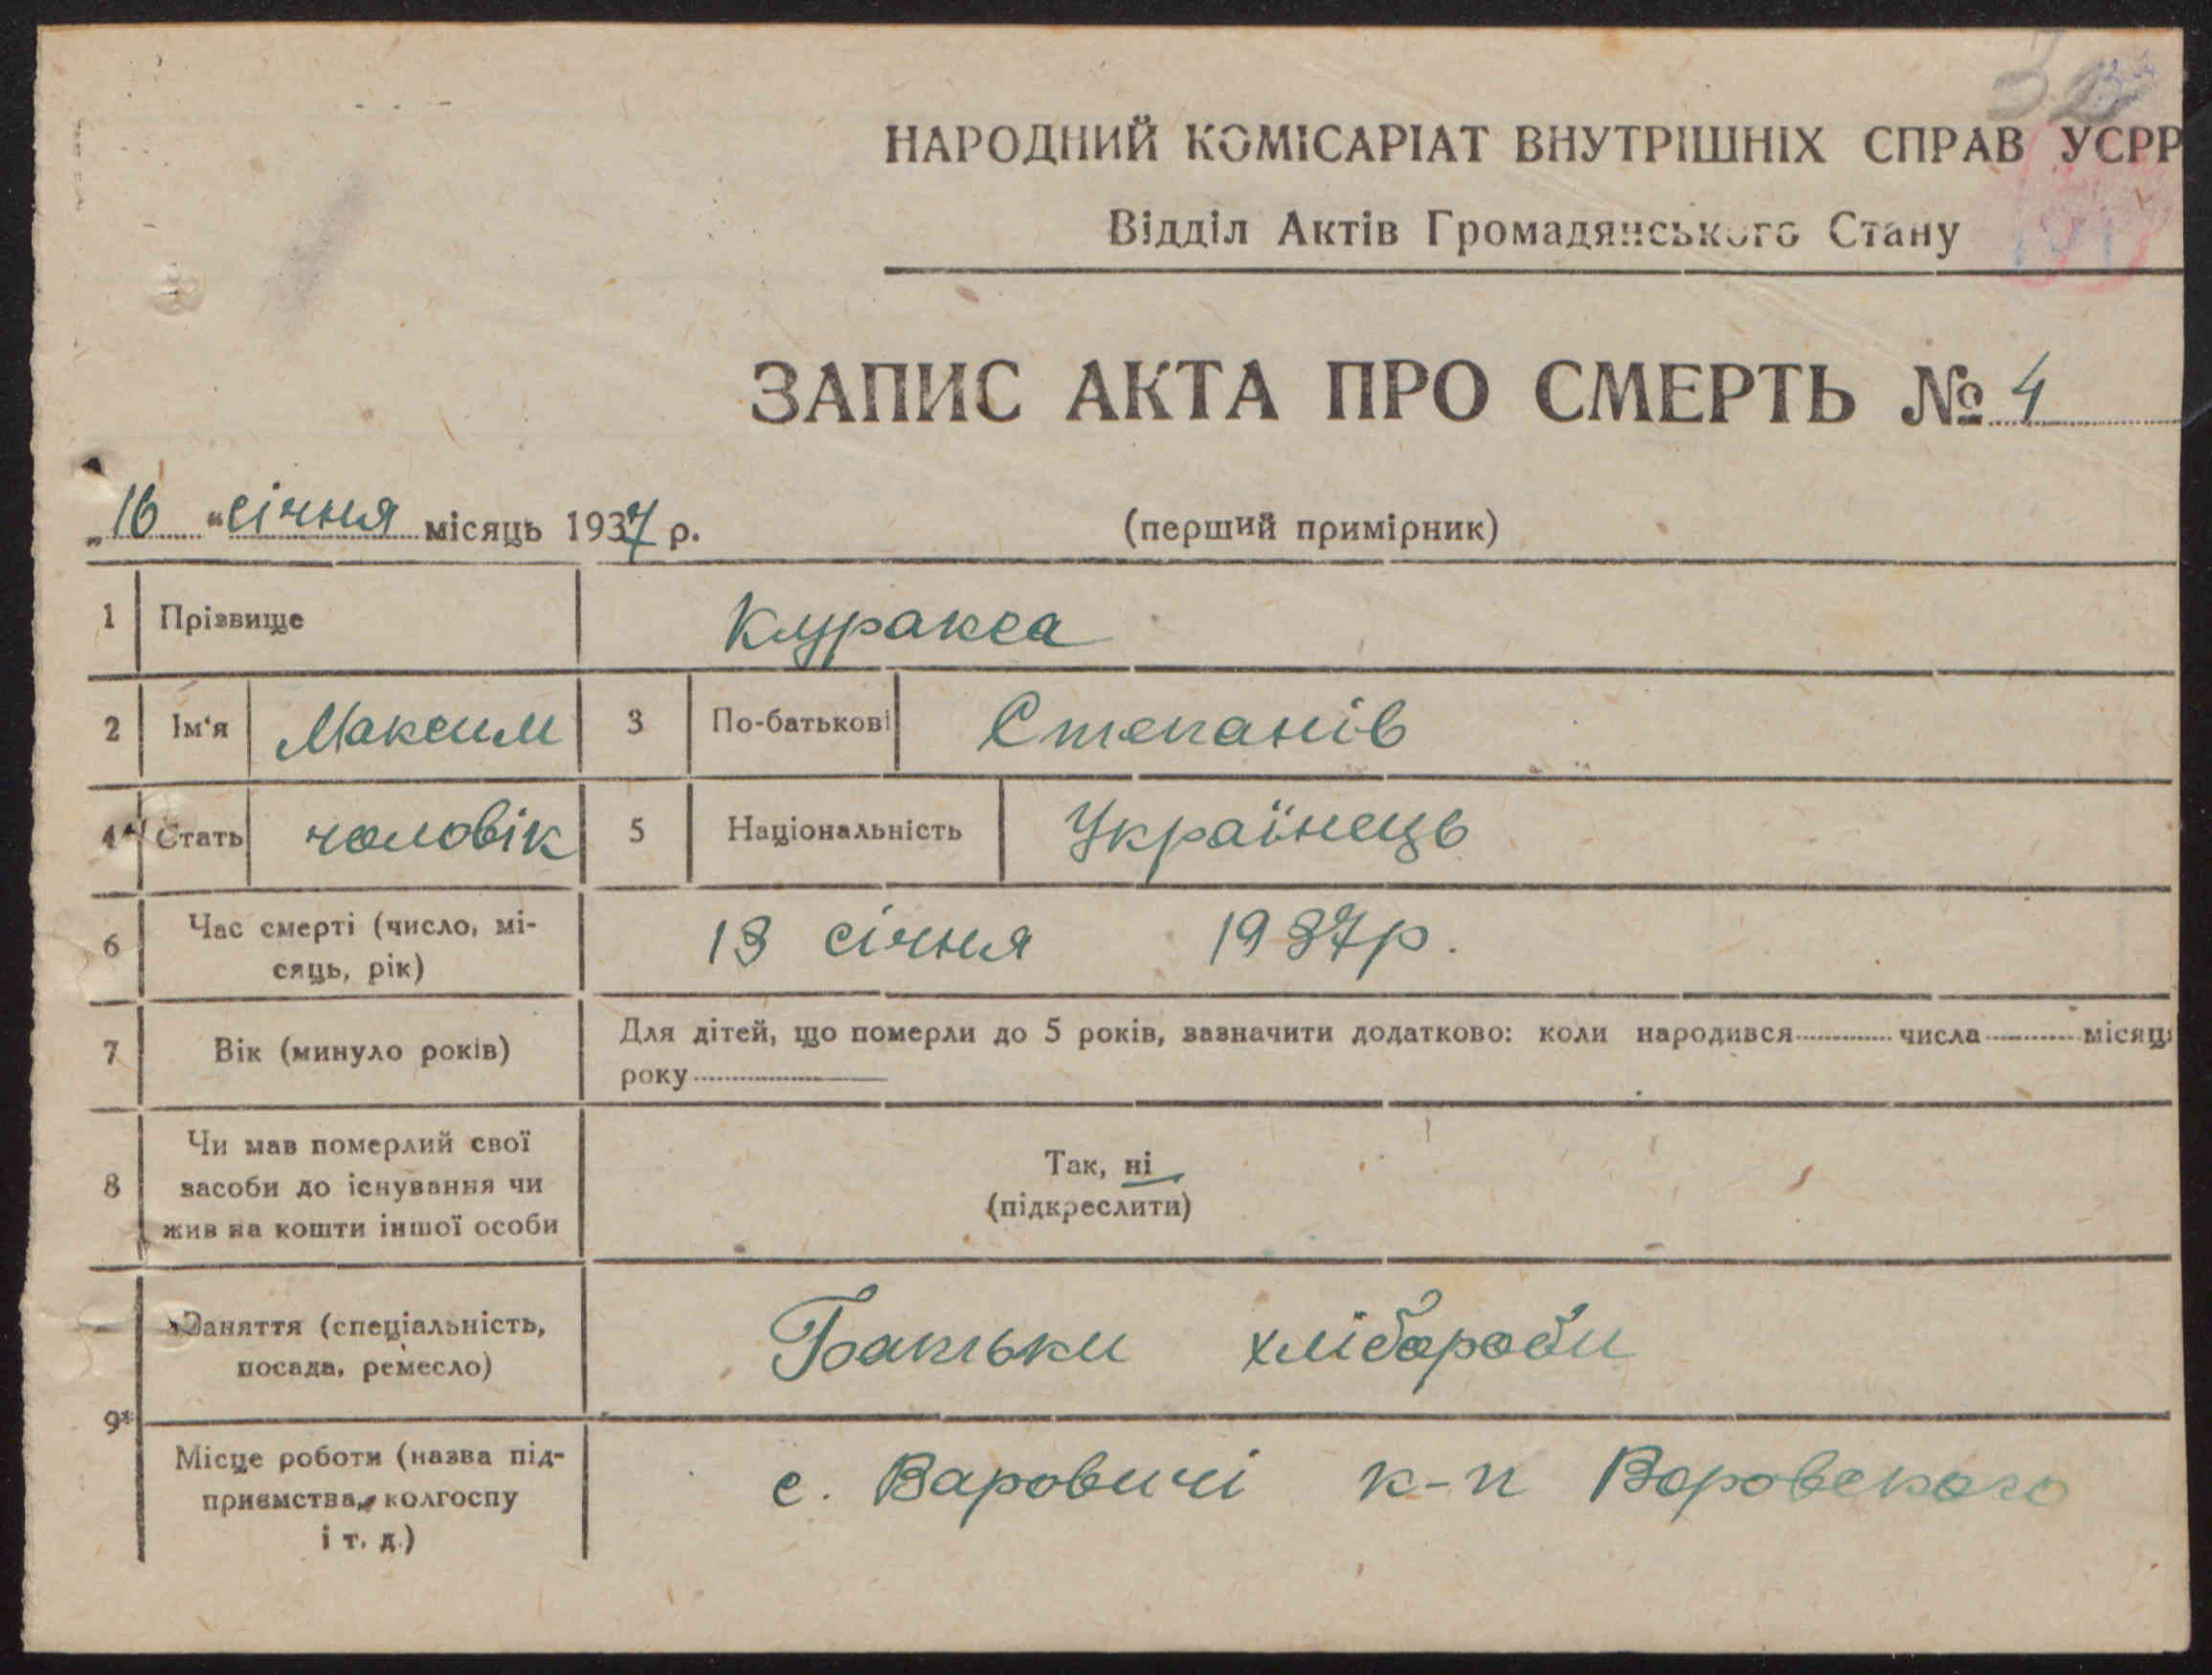 НАРОДНИЙ КОМІСАРІАТ ВНУТРІШНІХ СПРАВ УСРР
Відділ Актів Громадянського Стану
ЗАПИС АКТА ПРО СМЕРТЬ № 4
„16" січня місяць 1937 р.
(перший примірник)
1 Прізвище Куракса
2 Ім'я Максим 3 По-батькові Степанів
4* Стать чоловік 5 Національність Українець
6 Час смерті (число, мі-
сяць, рік) 13 січня 1937р.
7 Вік (минуло років) Для дітей, що померли до 5 років, зазначити додатково: коли народився числа місяц
року
8 Чи мав померлий свої
засоби до існування чи
жив на кошти іншої особи
Так, ні
(підкреслити)
9* Заняття (спеціальність,
посада, ремесло) Батьки хлібороби
Місце роботи (назва під-
приємства, колгоспу
і т. д.) с. Варовичі к-п Воровского